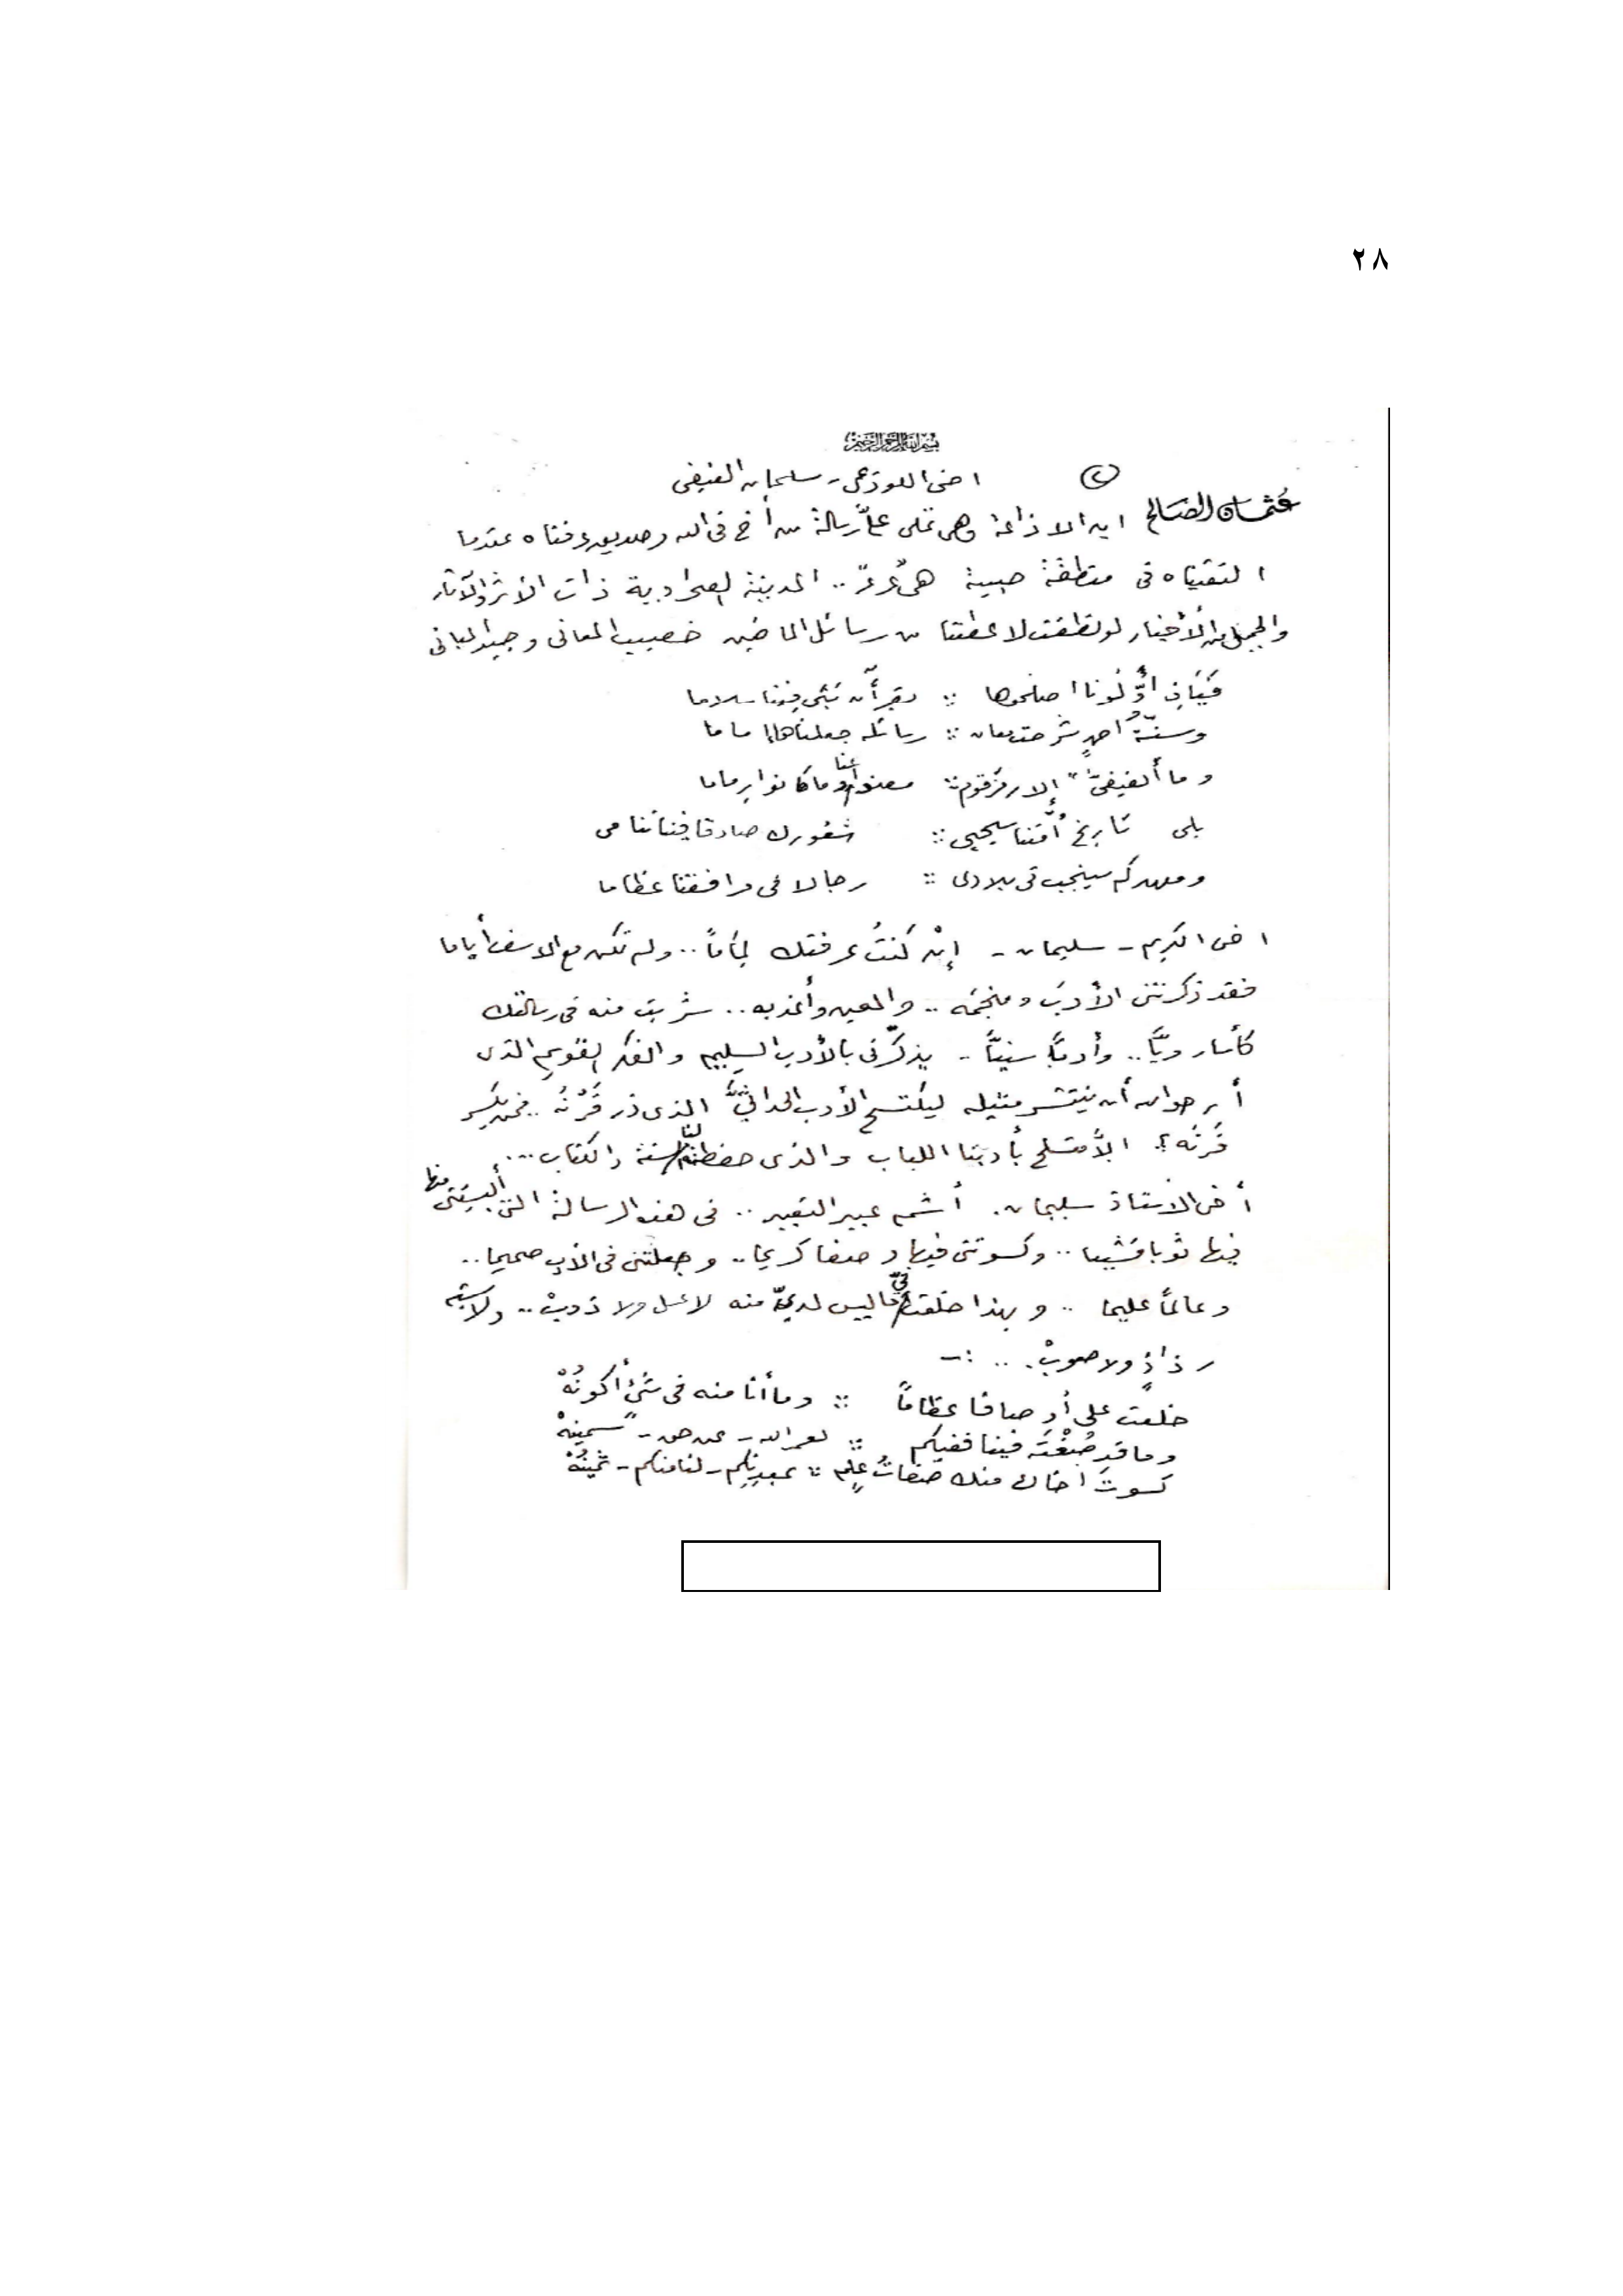 ٢٨
بسم الله الرحمن الرحيم
(٢) اخى اللوذعى - سليمان الفيفى
عثمان الصالح ايه الاذاعة وهى تملى علىَّ رسالة من أخ فى الله وصديق عرفناه عندما
التقيناه فى منطقة حبيبة هى عرعر .. المدينة ذات الأثر والآثار
والجميل من الأخبار لو نطقت لأعطتنا من رسائل الماضين خصيب المعانى وجيد المبانى
أوّلونا اصلحوها :: بقرآن
وسنّةُ احمدٍ :: رسائله جعلناها إماما
وما "الفيفىّ" إلا رمز قوم :: مضوا عنا وما كانوا رماما
بلى تاريخ أمّتنا سيحيى :: شعورك صادقا فينا تنامى
ومعهدكم سينجب فى بلادى :: رجالا فى مرافقنا عظاما
اخى الكريم - سليمان - إنْ كنتُ عرفتك لِمَاماً .. ولم تكن مع الاسف أياما
فقد ذكرتنى الأدبَ ومنجمَه .. والمعين وأعذبه .. شربت منه فى رسالتك
كأسا رويَّا .. وأدبًا سنيَّاً - يذكّرنى بالأدب السليم والفكر القويم الذى
أرجو الله أن ينتشر مثيله ليكتسح الأدب الحداثىَّ الذى ذر قَرْنُه .. فمن يكسر
قَرنَه؟ الاَّ متسلح بأدبنا اللباب والذى حفظته لنا السنة والكتاب ...
أخى الاستاذ سليمان. أشم عبير التعبير .. فى هذه الرسالة التى ألبستنى منها
فيها ثوبا قشيبا .. وكسوتنى فيها وصفا كريما .. وجعلتنى فى الأدب صميما ..
وعالماً عليما .. وبهذا خلعت فىَّ ما ليس لدىَّ منه لا عسل ولا ذوبْ .. ولا شبه
رذاذٍ ولا صوبْ. .. :-
خلعت على أوصافا عظاماً :: وما أنا منه فى شئ أكونُهْ
وما قد صُغْتَه فينا ففيكم :: لعمر الله - عن حق - سمينهْ
كسوتَ اخاك منك صفاتُ علمٍ :: - لنا منكم - ثمينُهْ